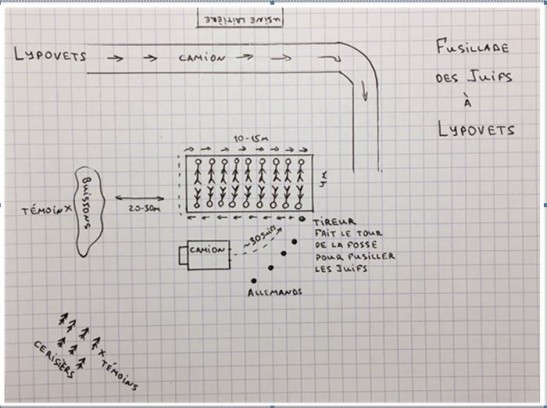 USINE LAITIÈRE
LYPOVETS
CAMION
FUSILLADE
DES JUIFS
À
LYPOVETS
10-15m
4m
BUISSONS
TÉMOIN X
20-30m
CAMION
~30 min
TIREUR
FAIT LE TOUR
DE LA FOSSE
POUR FUSILLER
LES JUIFS
ALLEMANDS
CERISIERS
X TÉMOINS